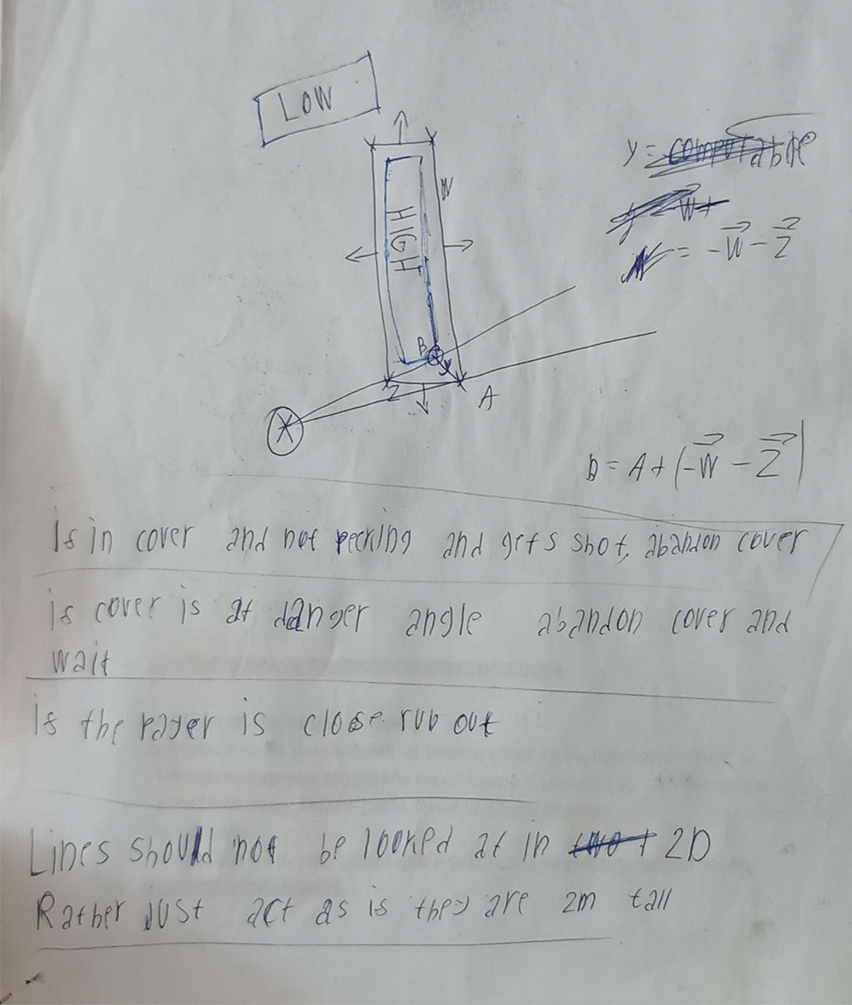 LOW
y = computable
W
HIGH
y = -W +
N = -W - Z
B
y
Z
A
X
B = A + (-W - Z)
Is in cover and not pecking and gets shot, abandon cover
is cover is at danger angle abandon cover and
wait
is the player is close run out
Lines should not be looked at in two 2D
Rather just act as is they are 2m tall